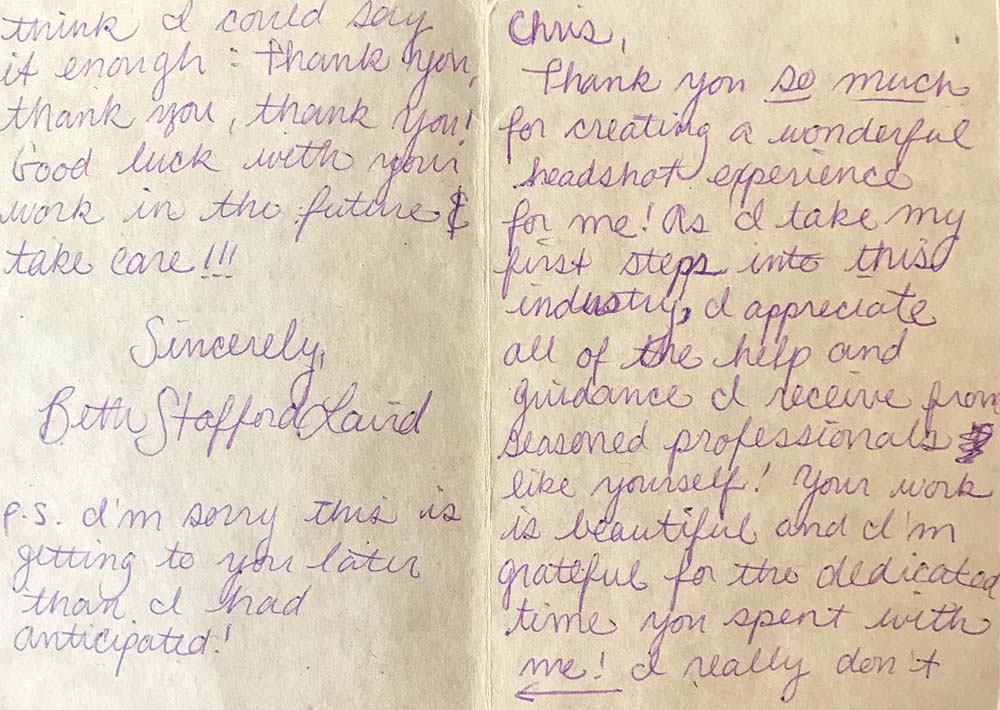 Chris,
Thank you so much
for creating a wonderful
headshot experience
for me! As I take my
first steps into this
industry, I appreciate
all of the help and
guidance I receive from
seasoned professionals
like yourself! Your work
is beautiful and I'm
grateful for the dedicated
time you spent with
me! I really don't
think I could say
it enough: Thank you,
thank you, thank you!
Good luck with your
work in the future &
take care!!!
Sincerely,
Beth Stafford Laird
P.S. I'm sorry this is
getting to you later
than I had
anticipated!